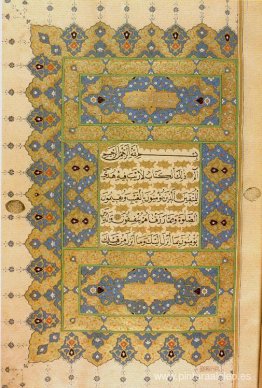 بسم الله الرحمن الرحيم
الم ذلك الكتاب لا ريب فيه هدى
للمتقين الذين يؤمنون بالغيب ويقيمون
الصلوة ومما رزقناهم ينفقون والذين
يؤمنون بما أنزل إليك وما أنزل من قبلك